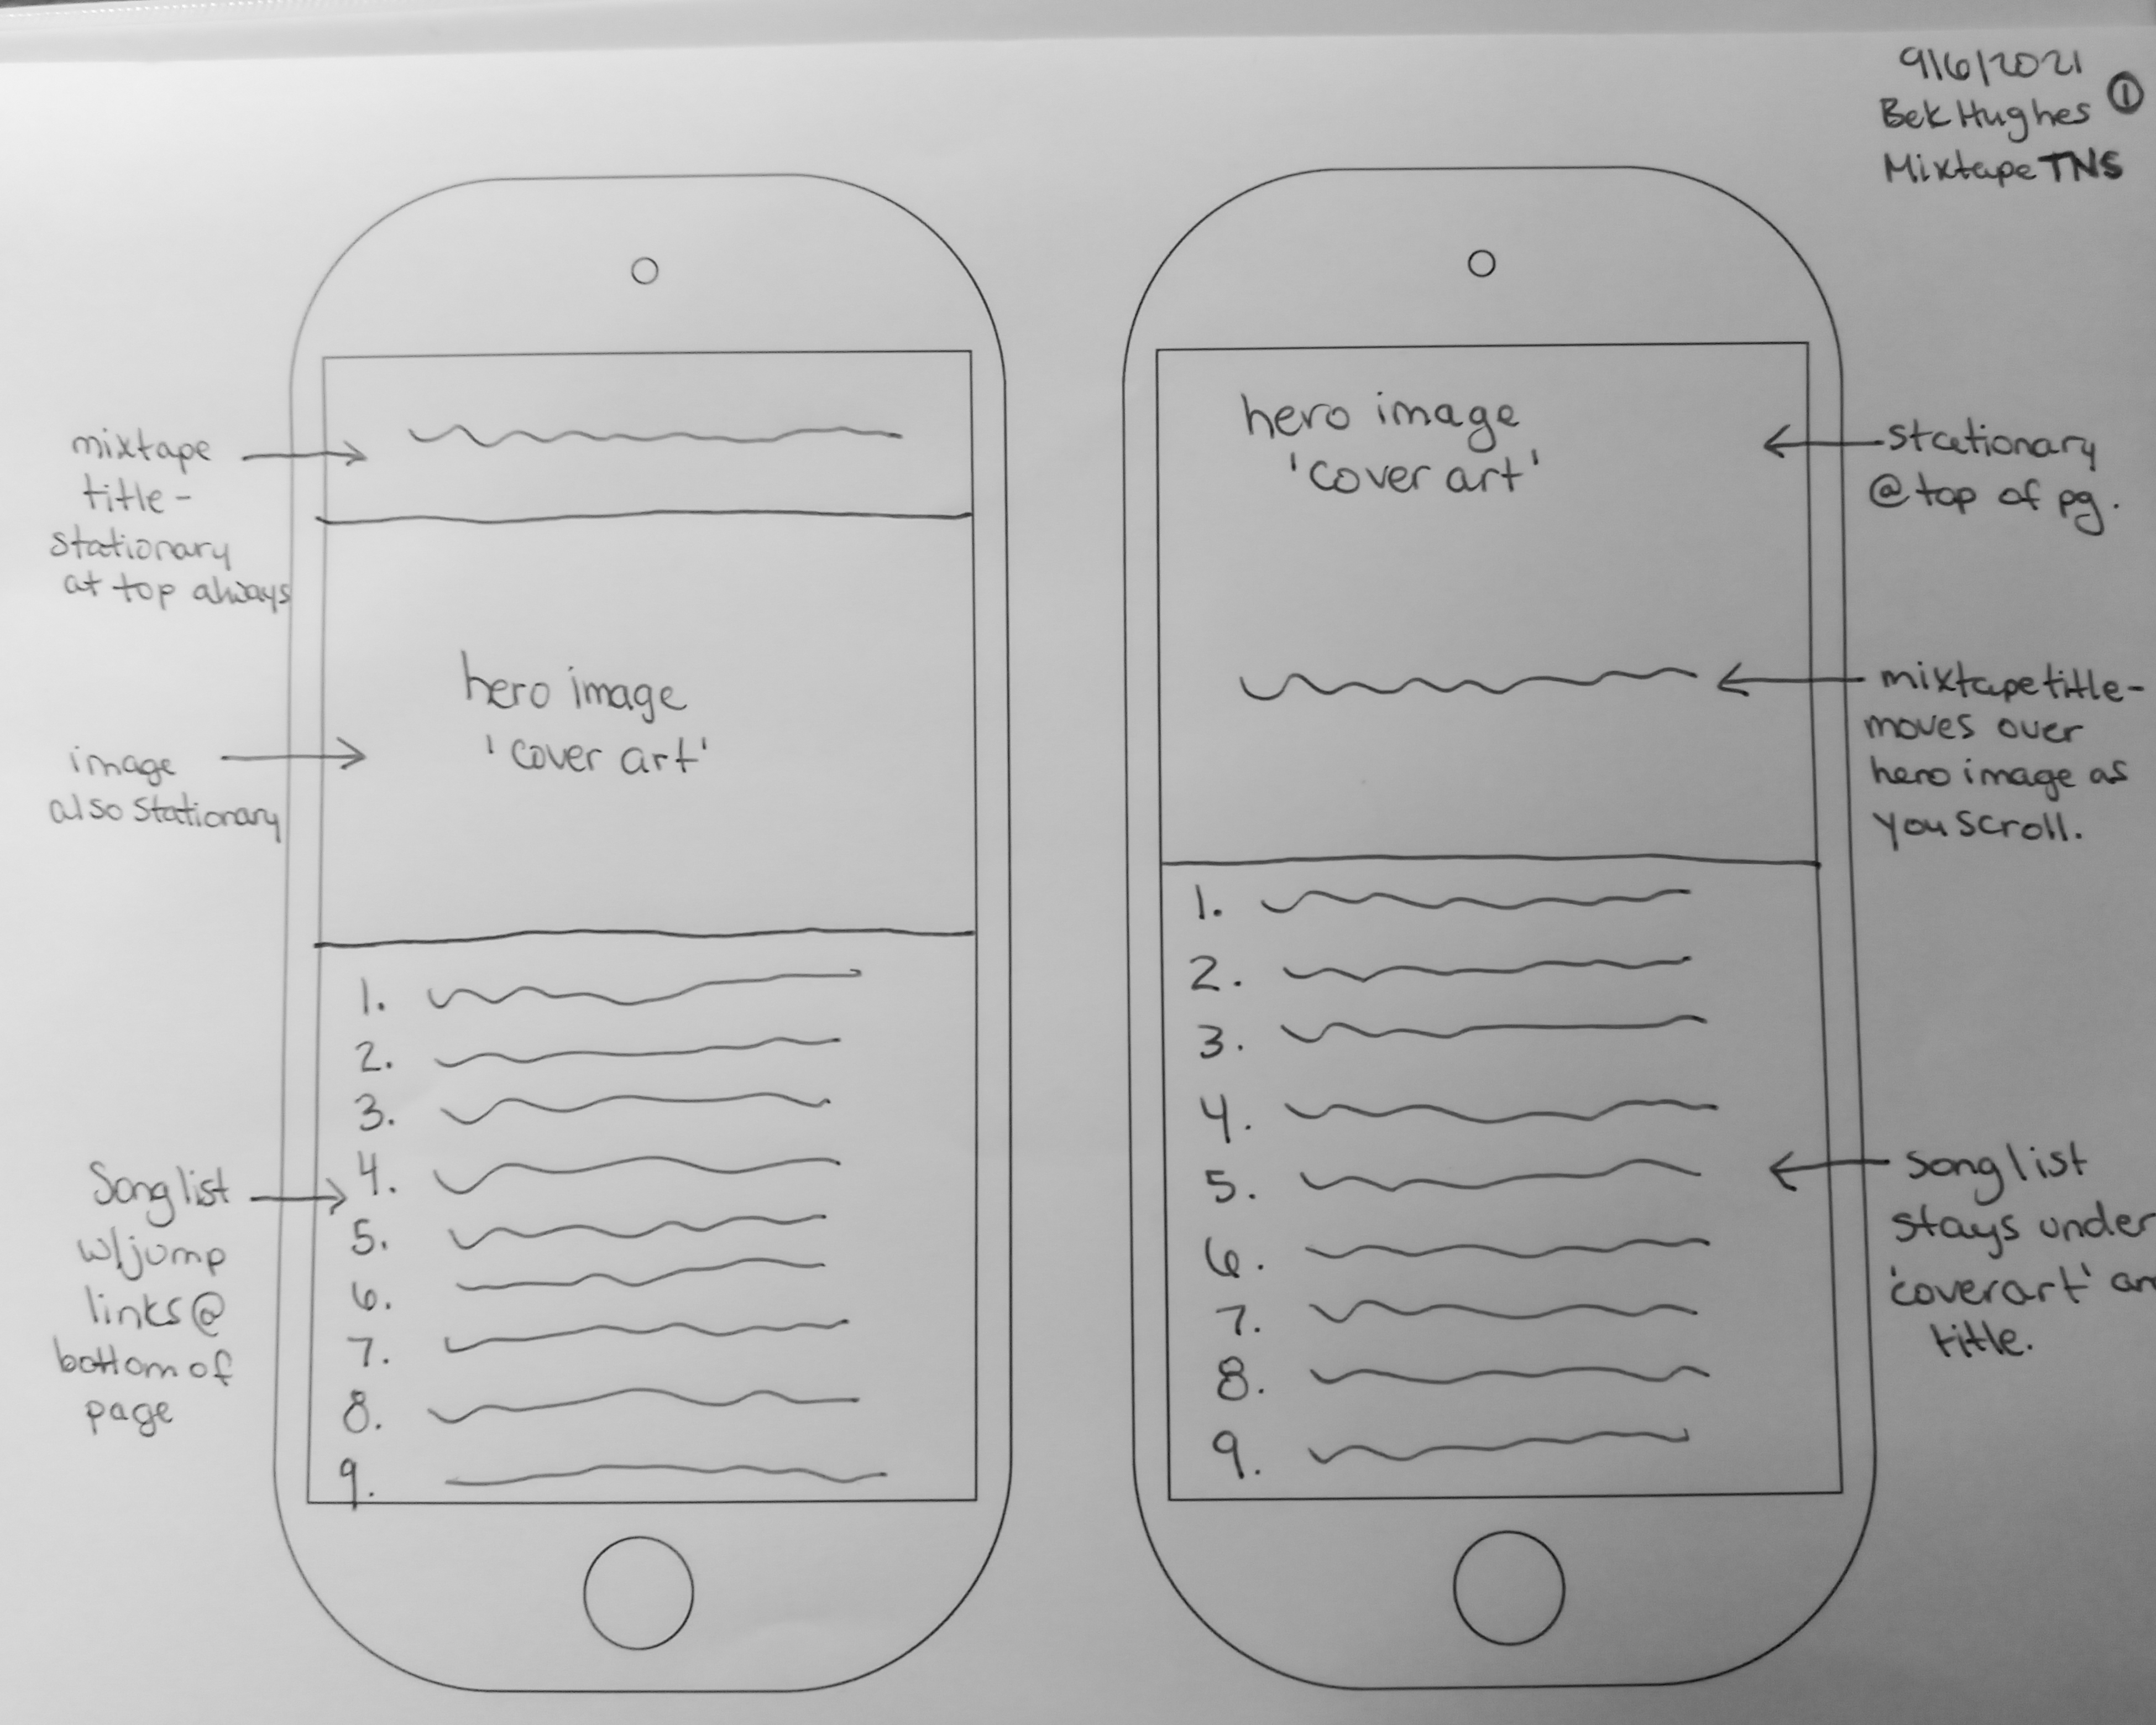 9/6/2021
Bek Hughes ①
Mixtape TNS
mixtape
title -
stationary
at top always
hero image
'cover art'
image
also stationary
1.
2.
3.
4.
5.
6.
7.
8.
9.
Song list
w/jump
links @
bottom of
page
hero image
'cover art'
stationary
@ top of pg.
mixtape title -
moves over
hero image as
you scroll.
1.
2.
3.
4.
5.
6.
7.
8.
9.
song list
stays under
'cover art' an
title.